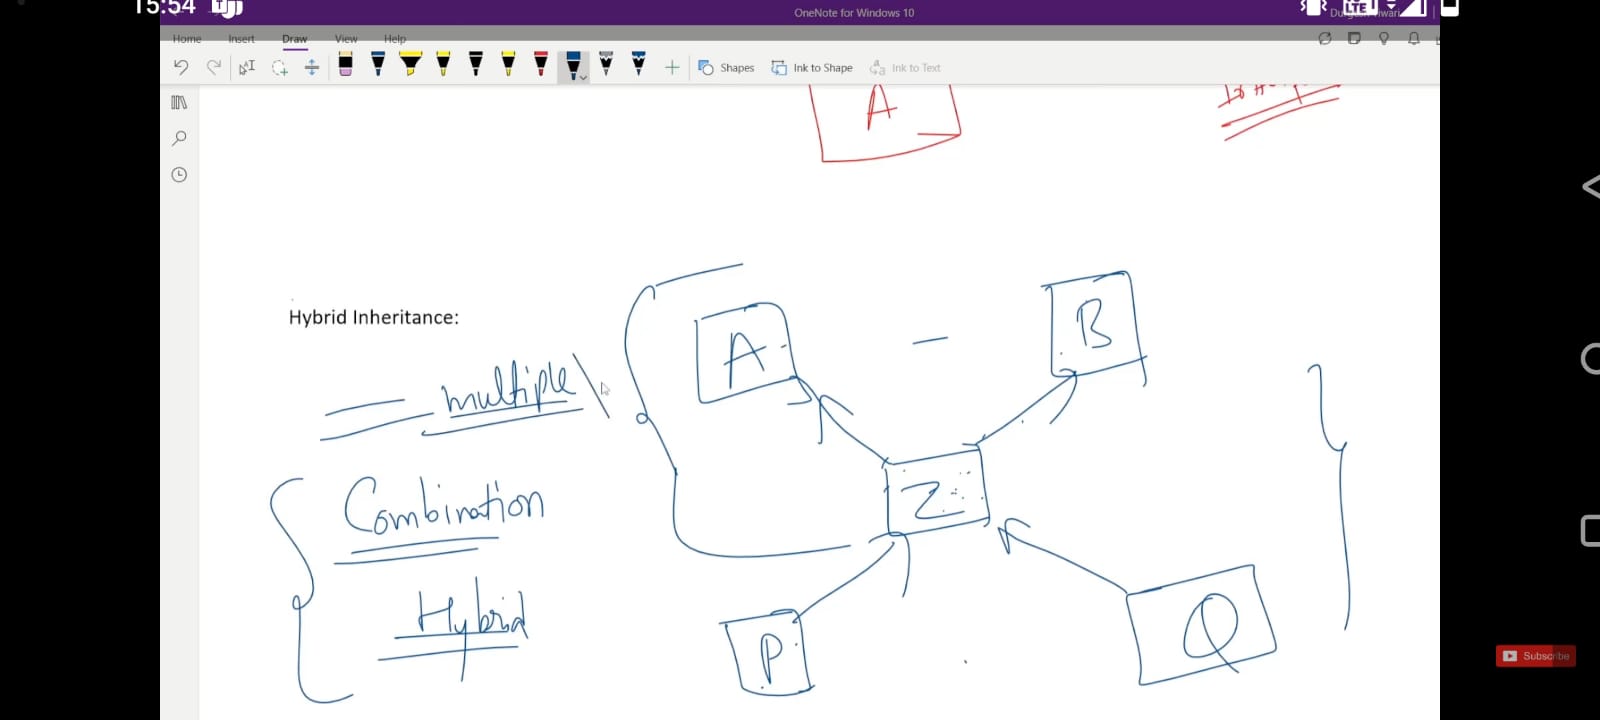 15:54
OneNote for Windows 10
Home Insert Draw View Help
Shapes Ink to Shape Ink to Text
A
A
B
Hybrid Inheritance:
multiple
Z
Combination
Hybrid
P
Q
Subscribe